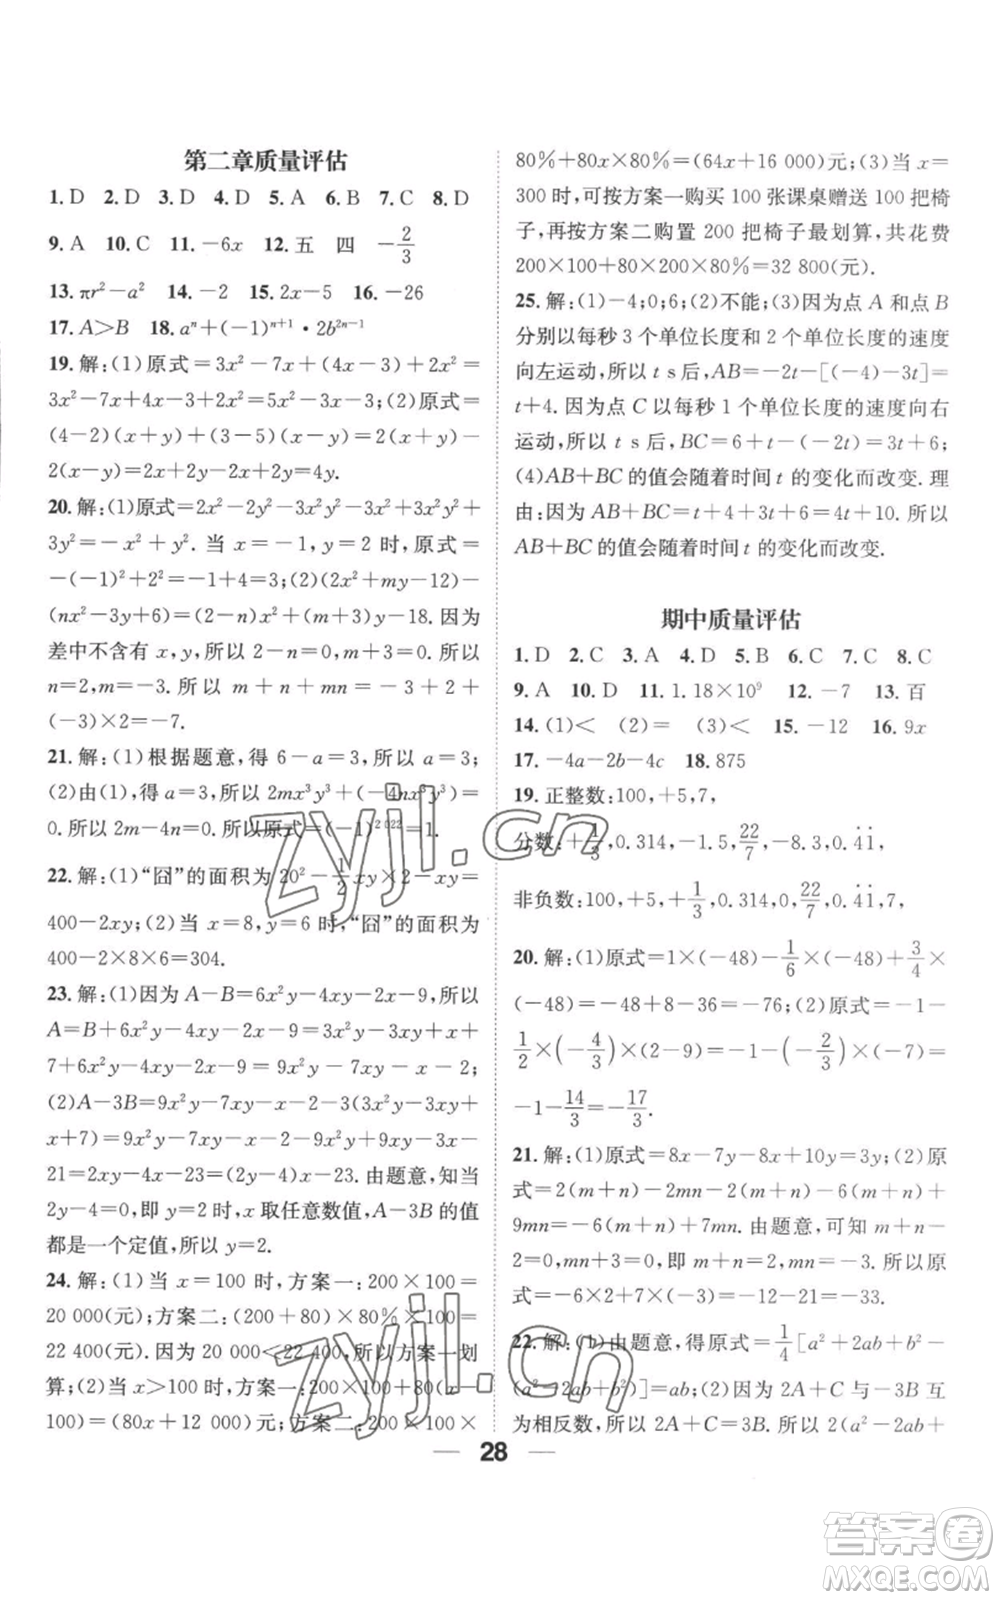 第二章质量评估
1. D 2. D 3. D 4. D 5. A 6. B 7. C 8. D
9. A 10. C 11. －6x 12. 五 四 －2/3
13. πr²－a² 14. －2 15. 2x－5 16. －26
17. A＞B 18. aⁿ＋(－1)ⁿ⁺¹·2b²ⁿ⁻¹
19. 解:(1)原式＝3x²－7x＋(4x－3)＋2x²＝
3x²－7x＋4x－3＋2x²＝5x²－3x－3;(2)原式＝
(4－2)(x＋y)＋(3－5)(x－y)＝2(x＋y)－
2(x－y)＝2x＋2y－2x＋2y＝4y.
20. 解:(1)原式＝2x²－2y²－3x²y²－3x²＋3x²y²＋
3y²＝－x²＋y². 当 x＝－1,y＝2 时,原式＝
－(－1)²＋2²＝－1＋4＝3;(2)(2x²＋my－12)－
(nx²－3y＋6)＝(2－n)x²＋(m＋3)y－18. 因为
差中不含有 x,y,所以 2－n＝0,m＋3＝0. 所以
n＝2,m＝－3. 所以 m＋n＋mn＝－3＋2＋
(－3)×2＝－7.
21. 解:(1)根据题意,得 6－a＝3,所以 a＝3;
(2)由(1),得 a＝3,所以 2mx³y³＋(－4nx³y³)＝
0. 所以 2m－4n＝0. 所以原式＝(－1)²⁰²²＝1.
22. 解:(1)“囧”的面积为 20²－1/2xy×2－xy＝
400－2xy;(2)当 x＝8,y＝6 时,“囧”的面积为
400－2×8×6＝304.
23. 解:(1)因为 A－B＝6x²y－4xy－2x－9,所以
A＝B＋6x²y－4xy－2x－9＝3x²y－3xy＋x＋
7＋6x²y－4xy－2x－9＝9x²y－7xy－x－2;
(2)A－3B＝9x²y－7xy－x－2－3(3x²y－3xy＋
x＋7)＝9x²y－7xy－x－2－9x²y＋9xy－3x－
21＝2xy－4x－23＝(2y－4)x－23. 由题意,知当
2y－4＝0,即 y＝2 时,x 取任意数值,A－3B 的值
都是一个定值,所以 y＝2.
24. 解:(1)当 x＝100 时,方案一:200×100＝
20 000(元);方案二:(200＋80)×80%×100＝
22 400(元). 因为 20 000＜22 400,所以方案一划
算;(2)当 x＞100 时,方案一:200×100＋80(x－
100)＝(80x＋12 000)元;方案二:200×100×
80%＋80x×80%＝(64x＋16 000)元;(3)当 x＝
300 时,可按方案一购买 100 张课桌赠送 100 把椅
子,再按方案二购置 200 把椅子最划算,共花费
200×100＋80×200×80%＝32 800(元).
25. 解:(1)－4;0;6;(2)不能;(3)因为点 A 和点 B
分别以每秒 3 个单位长度和 2 个单位长度的速度
向左运动,所以 t s 后,AB＝－2t－[(－4)－3t]＝
t＋4. 因为点 C 以每秒 1 个单位长度的速度向右
运动,所以 t s 后,BC＝6＋t－(－2t)＝3t＋6;
(4)AB＋BC 的值会随着时间 t 的变化而改变. 理
由:因为 AB＋BC＝t＋4＋3t＋6＝4t＋10. 所以
AB＋BC 的值会随着时间 t 的变化而改变.
期中质量评估
1. D 2. C 3. A 4. D 5. B 6. C 7. C 8. C
9. A 10. D 11. 1.18×10⁹ 12. －7 13. 百
14. (1)＜ (2)＝ (3)＜ 15. －12 16. 9x
17. －4a－2b－4c 18. 875
19. 正整数:100,＋5,7,
分数:＋1/3,0.314,－1.5,22/7,－8.3,0.4̇1̇,
非负数:100,＋5,＋1/3,0.314,0,22/7,0.4̇1̇,7,
20. 解:(1)原式＝1×(－48)－1/6×(－48)＋3/4×
(－48)＝－48＋8－36＝－76;(2)原式＝－1－
1/2×(－4/3)×(2－9)＝－1－(－2/3)×(－7)＝
－1－14/3＝－17/3.
21. 解:(1)原式＝8x－7y－5x＋10y＝3x＋3y;(2)原
式＝2(m＋n)－2mn－8(m＋n)＋
9mn＝－6(m＋n)＋7mn. 由题意,可知 m＋n－
2＝0,mn＋3＝0,即 m＋n＝2,mn＝－3. 所以原
式＝－6×2＋7×(－3)＝－12－21＝－33.
22. 解:(1)由题意,得原式＝1/4[a²＋2ab＋b²－
(a²－2ab＋b²)]＝ab;(2)因为 2A＋C 与－3B 互
为相反数,所以 2A＋C＝3B. 所以 2(a²－2ab＋
28
zyjl.cn
zyjl.cn
答案圈
MXQE.COM